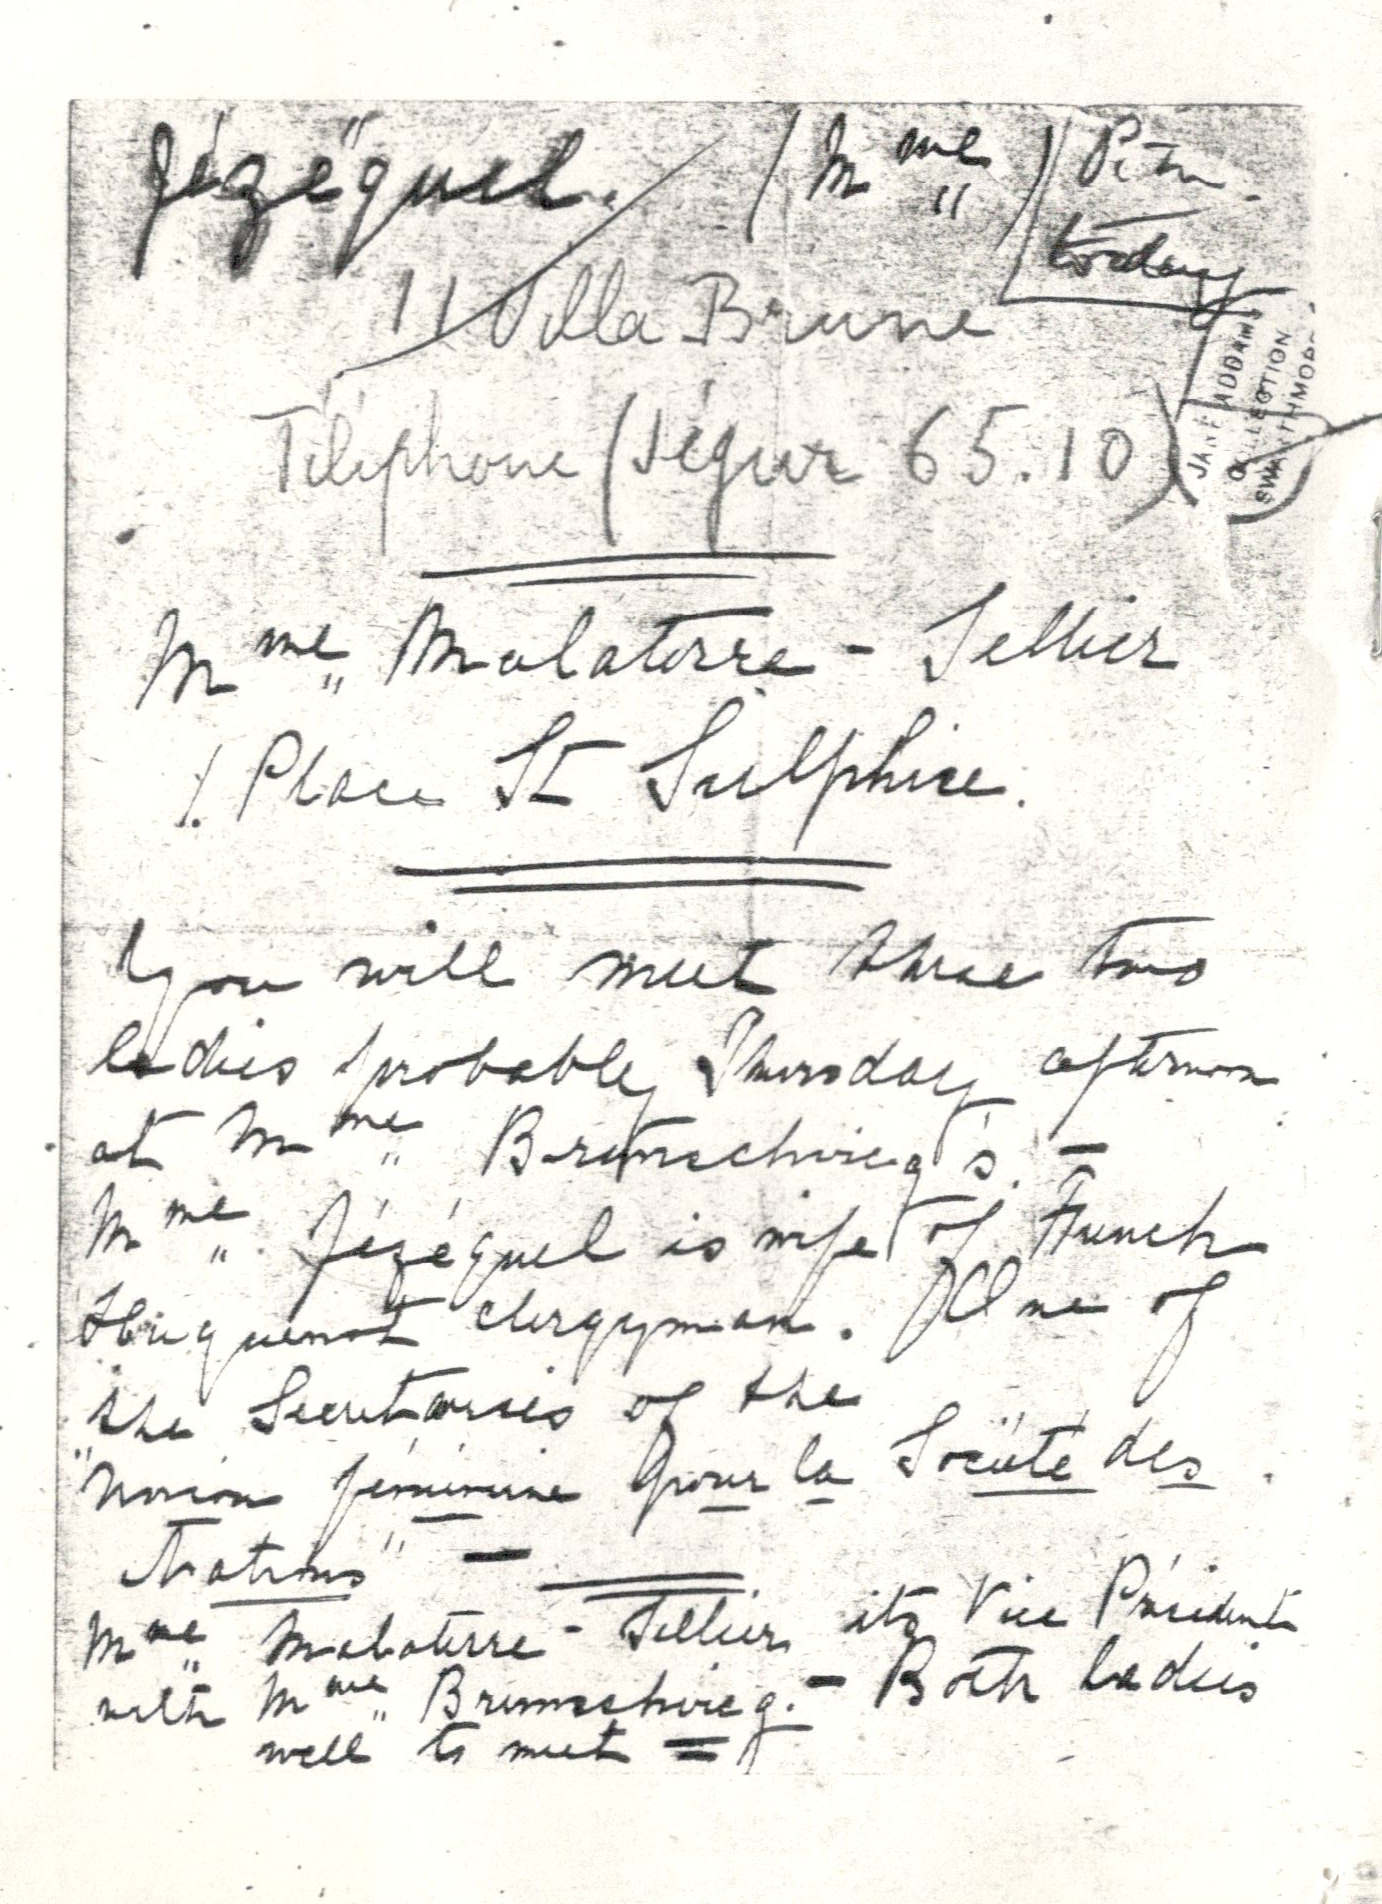 Jézéquel. (Mme)
today
11 Villa Brune
Téléphone (Ségur 65.10)
JANE ADDAMS
COLLECTION
SWARTHMORE
Mme Malaterre - Sellier
1. Place St Sulphice.
You will meet these two
ladies probably Thursday afternoon
at Mme Brunschvicg's. -
Mme Jézéquel is wife of French
Huguenot clergyman. One of
the Secretaries of the
"Union féminine pour la Société des
Nations" -
Mme Malaterre - Sellier its Vice Président
with Mme Brunschvicg. - Both ladies
well to meet =